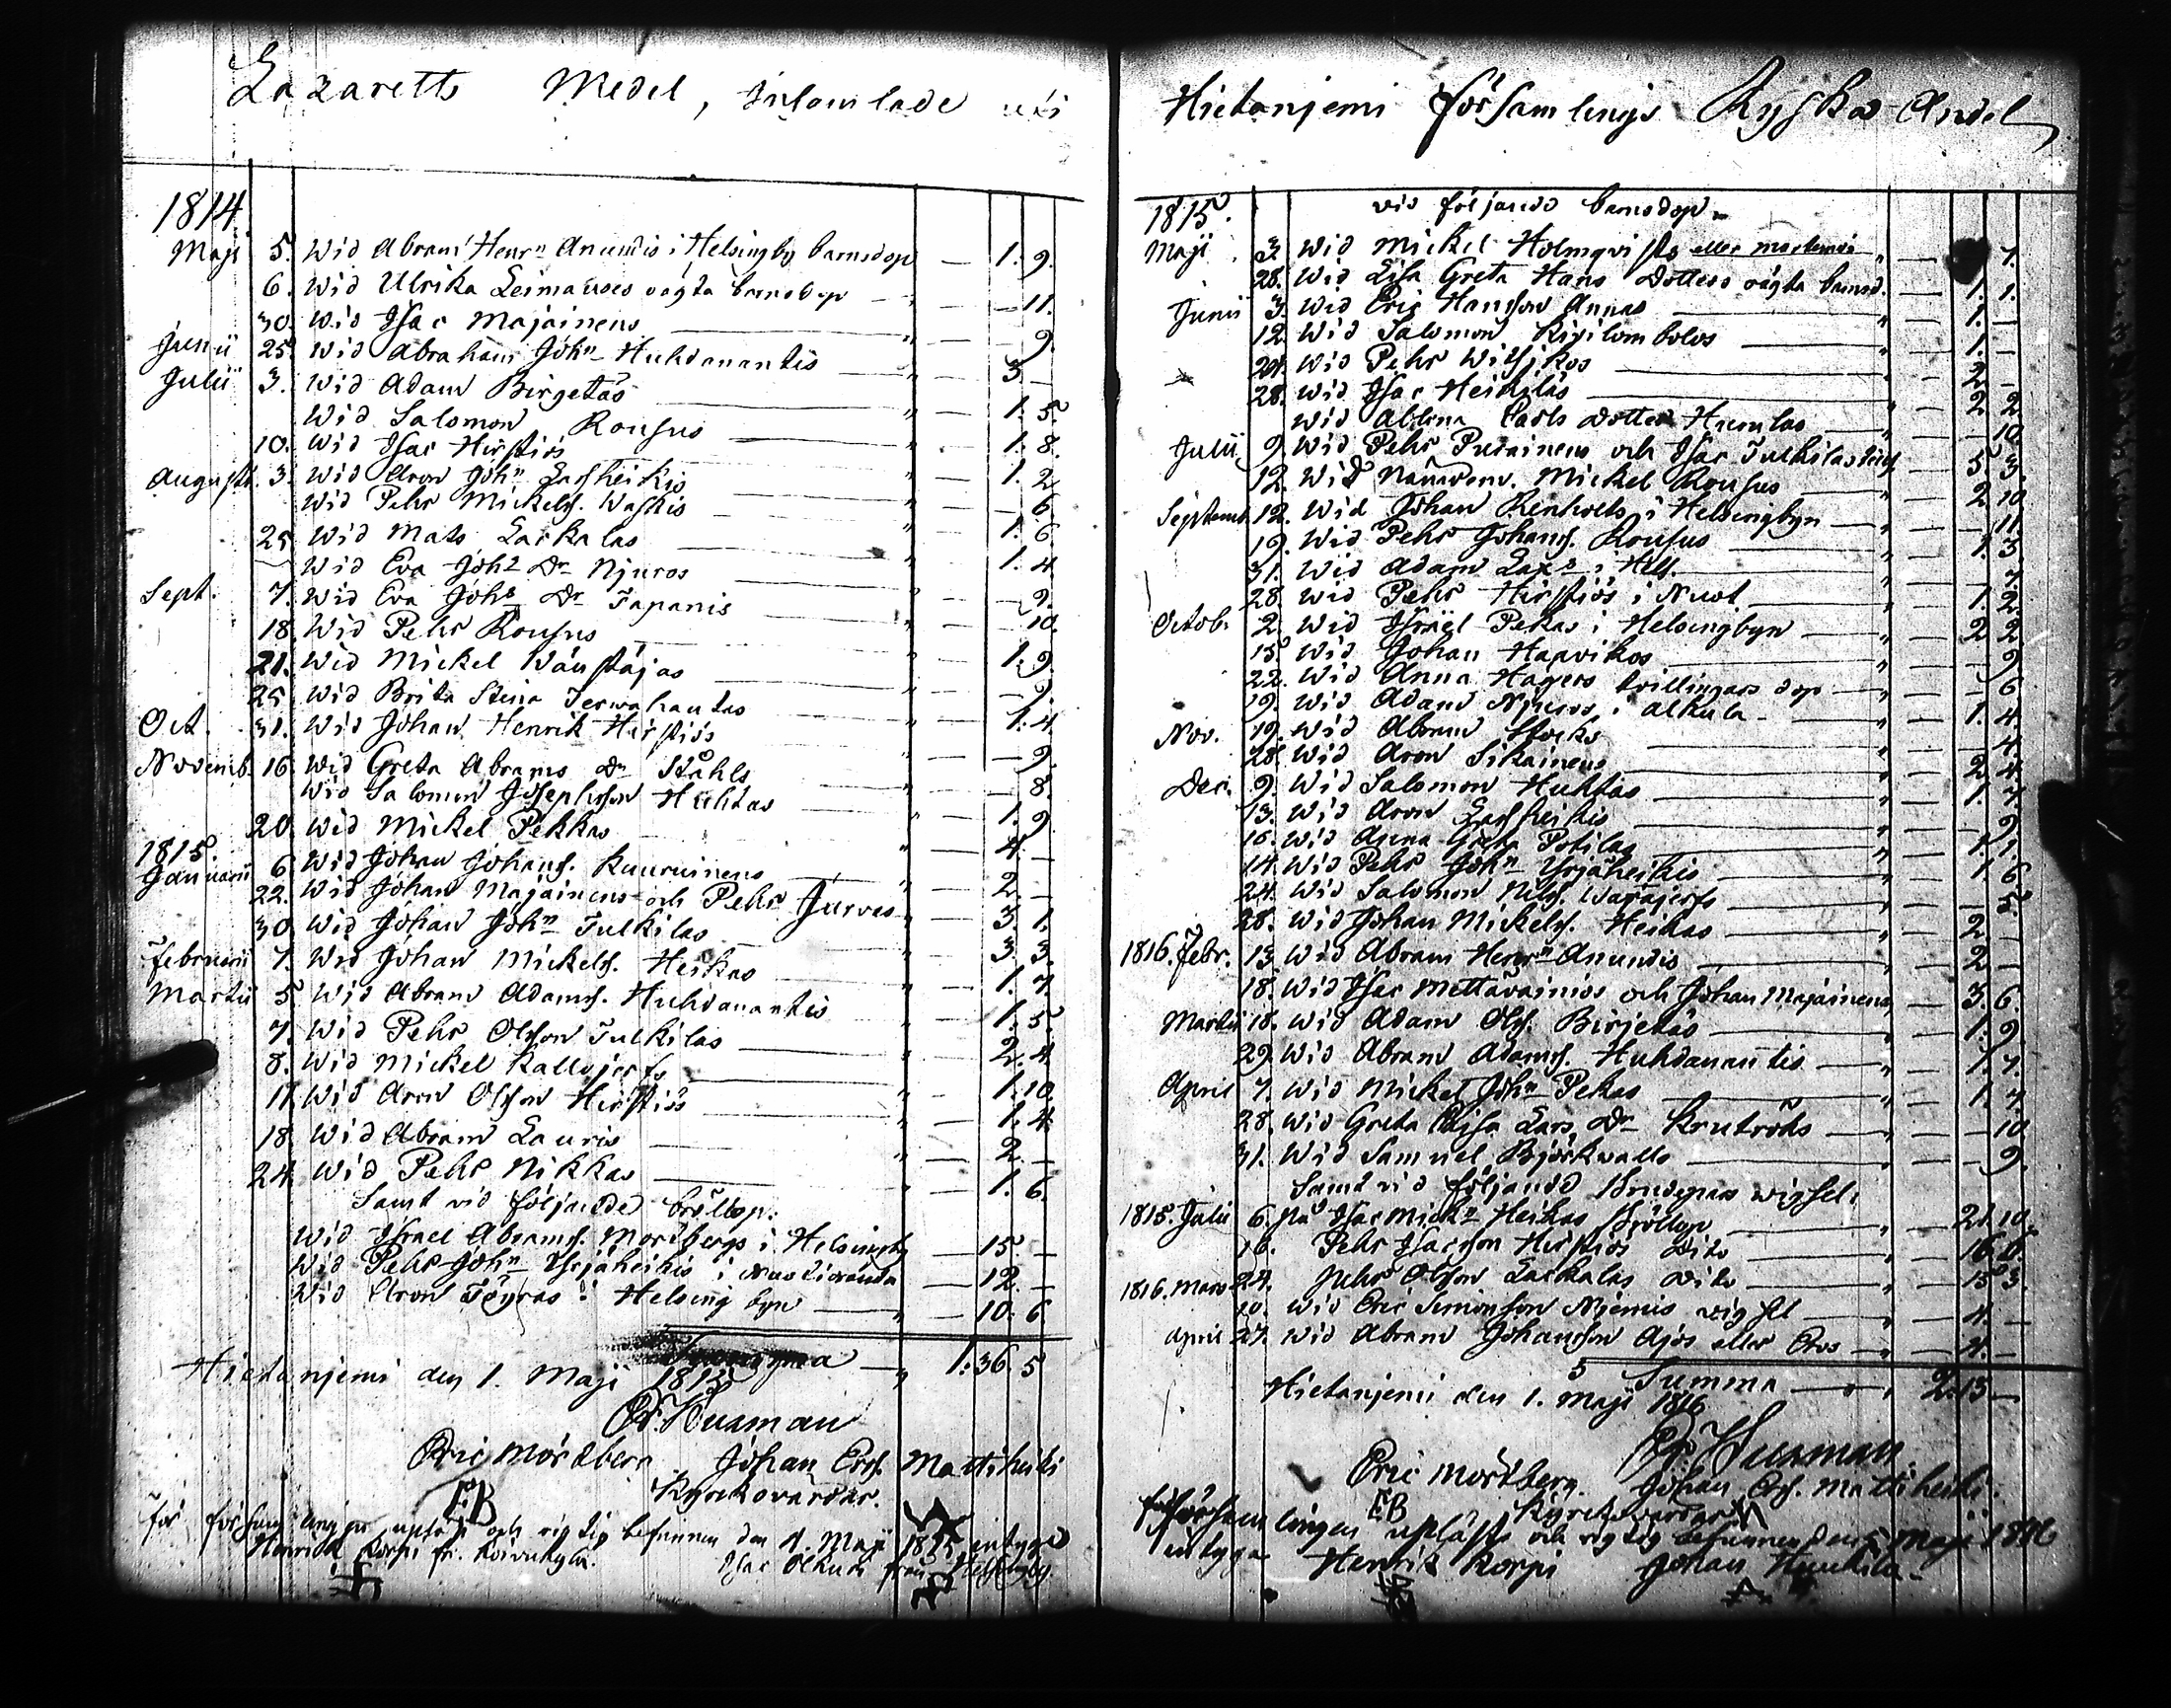 Lazaretts Medel, Insamlade uti
1814
Maji 5. Wid Abram Henrn Anundis i Helsingby barnsdop — 1. 9.
6. Wid Ulrika Leimauoes oägta barnsdop — — 11.
30. Wid Isac Majainens — — 9.
Junii 25. Wid Abraham Johns Huhdanantis — 3. —
Julii 3. Wid Adam Birgetas — 1. 5.
Wid Salomon Rousus — 1. 8.
10. Wid Isac Hirstiös — 1. 2.
Augusti. 3. Wid Aron Johns Lassheikis — — 6.
Wid Pehr Mickelss. Waskis — 1. 6.
25 Wid Mats Laekalas — 1. 4.
Wid Eva Johs Dr Njuros — — 9.
Sept. 7. Wid Eva Johs Dr Tapanis — — 10.
18. Wid Pehr Rousus — 1. 9.
21. Wid Mickel Wänstäjas — — 9.
25 Wid Brita Stina Terwahautas — 1. 4
Oct. 31. Wid Johan Henrik Hirstiös — — 9.
Novemb. 16. Wid Greta Abrams Dr Ståhls — — 8.
Wid Salomon Josephsson Huhtas — 1. 9
20. Wid Mickel Pekkas — 4. —
1815.
Januarii 6. Wid Johan Johanss. Kuuruinens — 2. —
22. Wid Johan Majainens och Pehr Jurvas — 3. 1.
30. Wid Johan Johns Tulkilas — 3. 3.
Februarii 7. Wid Johan Mickelss. Heikas — 1. 7.
Martii 5. Wid Abram Adamss. Huhdanantis — 1. 5.
7. Wid Pehr Olsson Tulkilas — 2. 4.
8. Wid Mickel Kallojerfs — 1. 10.
11. Wid Aron Olsson Hirstiös — 1. 4.
18. Wid Abram Lauris — 2. —
24. Wid Pehr Nikkas — 1. 6.
Samt vid följande bröllop:
Wid Israel Abramss. Mortbergs i Helsingby — 15. —
Wid Pehr Johns Yrjäheikis i — 12. —
Wid Aron Töyras i Helsing byn — 10. 6.
Summa — 1. 36. 5
Hietanjemi den 1. Maji 1815
Er. Husman
Eric Mörtberg Johan Erss. Mattiheiki
EB Kyrkovärdar.
För församlingen upläst och rigtig befunnen den 1. Maji 1815 intyga
Henrick Korpi fr. Koivukylä. Isac Olkuri från Helsingby.
Hietanjemi församlings Ryska Andel
1815. vid följande barnsdop
Maji 3. Wid Mickel Holmqvists eller — 7.
28. Wid Lisa Greta Hans Dotters oägta barnsd. — 1. 1.
Junii 3. Wid Eric Hansson Annas — 1. —
12. Wid Salomon Kixilombolos — 1. —
24. Wid Pehr Witsikos — 2. —
28. Wid Isac Heikiläs — 2. 2.
Wid Carls dotter — — 10.
Julii 9. Wid Pehr Puxainens och Isac Tulkilas — 5. 3.
12. Wid Nämndem. Mickel Rousus — 2. 10.
Septemb. 12. Wid Johan Renholts i Helsingbyn — — 11.
19. Wid Pehr Johanss. Rousus — 1. 3.
31. Wid Adam Lax i Hels. — — 7.
28. Wid Pehr Hirstiös i Nuot — 1. 2.
Octob. 2. Wid Israel Pekas i Helsingbyn — 2. 2.
15. Wid Johan Haavikos — — 9.
22. Wid Anna Hagers tvillingars dop — — 6.
19. Wid Adam Njuros i Alkula — 1. 4.
Nov. 19. Wid Abram Stocks — — 4.
28. Wid Aron Sikainens — 2. 4.
Dec. 9. Wid Salomon Huhtas — 1. 7.
13. Wid Aron Lassheikis — — 9.
16. Wid Anna Greta Potilas — 1. 1.
14. Wid Pehr Johns Yrjäheikis — 1. 6.
24. Wid Salomon Nilss. — — 5.
28. Wid Johan Mickelss. Heikas — 2. —
1816. Febr. 13. Wid Abram Henrn Anundis — 2. —
18. Wid Isac Mettävainios och Johan Majainens — 3. 6.
Martii 18. Wid Adam Olss. Birjetas — 1. 9.
29. Wid Abram Adamss. Huhdanantis — 1. 7.
April 7. Wid Mickel Johns Pekas — 1. 7.
28. Wid Greta Lisa Lars Dr Krutröks — — 10.
31. Wid Samuel Björkvalls — — 9.
Samt vid följande Brudepars wigsel:
1815. Julii 6. på Isac Mickn Heikas Bröllop — 21. 10.
16. Pehr Isacsson Hirstiös dito — 16. 6.
1816. Mars 24. Pehr Olsson Laekalas dito — 15. 3.
20. Wid Eric Simonsson Njemis vigsel — 4. —
April 27. Wid Abram Johansson Ajos eller Eros — 4. —
Summa — 2. 13 —
Hietanjemi den 1. Maji 1816
Er. Husman
Eric Mörtberg. Johan Erss. Mattiheiki.
EB Kyrkovärdar
för församlingen upläst och rigtig befunnen den 5 Maji 1816
intyga Henrik Korpi Johan Huuhila